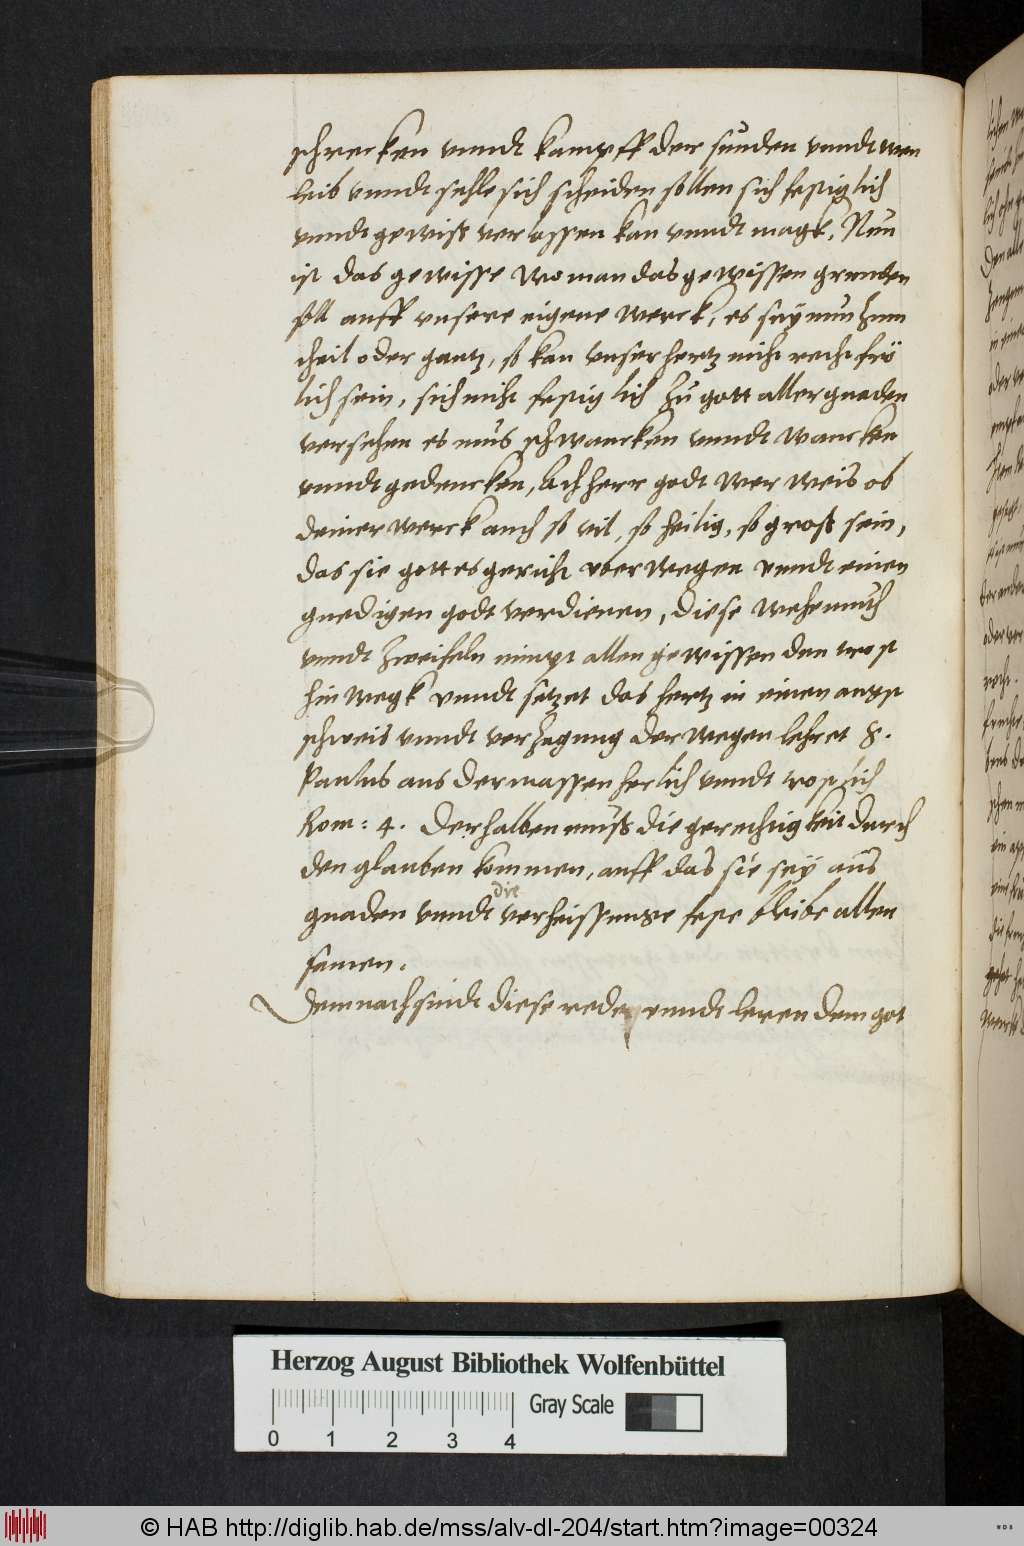 schrecken vnndt kampff der sunden vnndt wen
leib vnndt sehle sich scheiden sollen sich festiglich
vnndt gewiss verlassen kan vnndt magk, Nun
ist das gewisse wo man das gewissen grunden
soll auff vnsere eigene werck, es sey nun zum
theil oder gantz, so kan vnser hertz nicht recht frö
lich sein, sich nicht festiglich zu gott aller gnaden
versehen es mus schwancken vnndt wancken
vnndt gedencken, Ach herr godt wer weis ob
deiner werck auch so vil, so heilig, so gross sein,
das sie gottes gericht vberwegen vnndt einen
gnedigen godt verdienen, diese wehemuth
vnndt zweifeln nimpt allen gewissen den trost
hinwegk vnndt setzet das hertz in einen angst
schweis vnndt verzagung derwegen lehret S.
Paulus aus dermassen herlich vnndt trostlich
Rom: 4. Derhalben muss die gerechtigkeit durch
den glauben kommen, auff das sie sey aus
die
gnaden vnndt verheissunge feste bleibe allen
samen.
Demnach sindt diese rede vnndt leren dem got
Herzog August Bibliothek Wolfenbüttel
Gray Scale
0 1 2 3 4
© HAB http://diglib.hab.de/mss/alv-dl-204/start.htm?image=00324